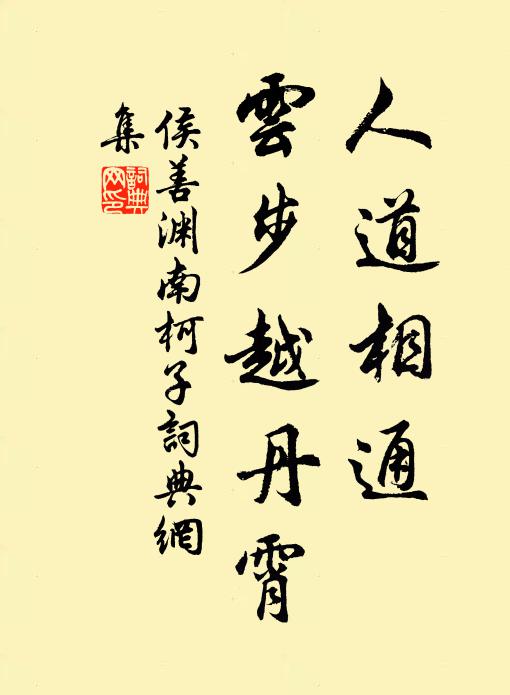 人道相通
雲步越丹霄
侯善渊南柯子詞典網
集
詞典网印